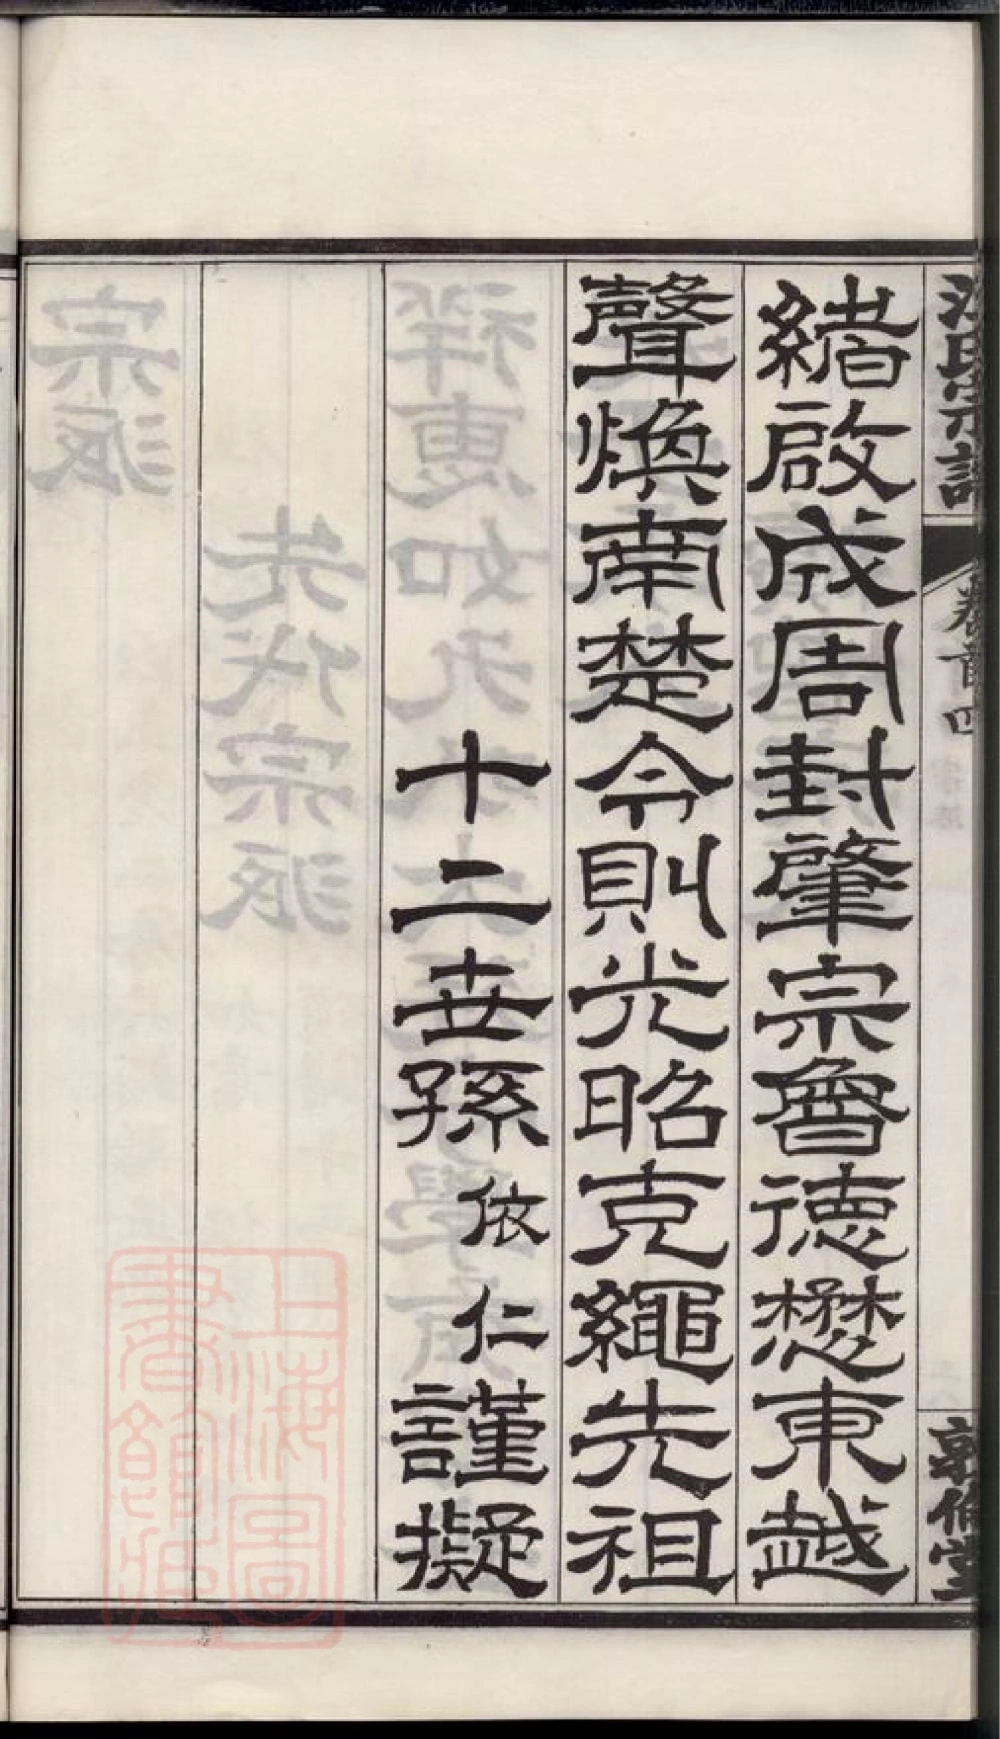 緒啟成周封肇宗會德懋東越
聲煥南楚令則光昭克繩先祖
十二世孫依仁謹擬
卷首四
敦倫堂
上海圖書館藏